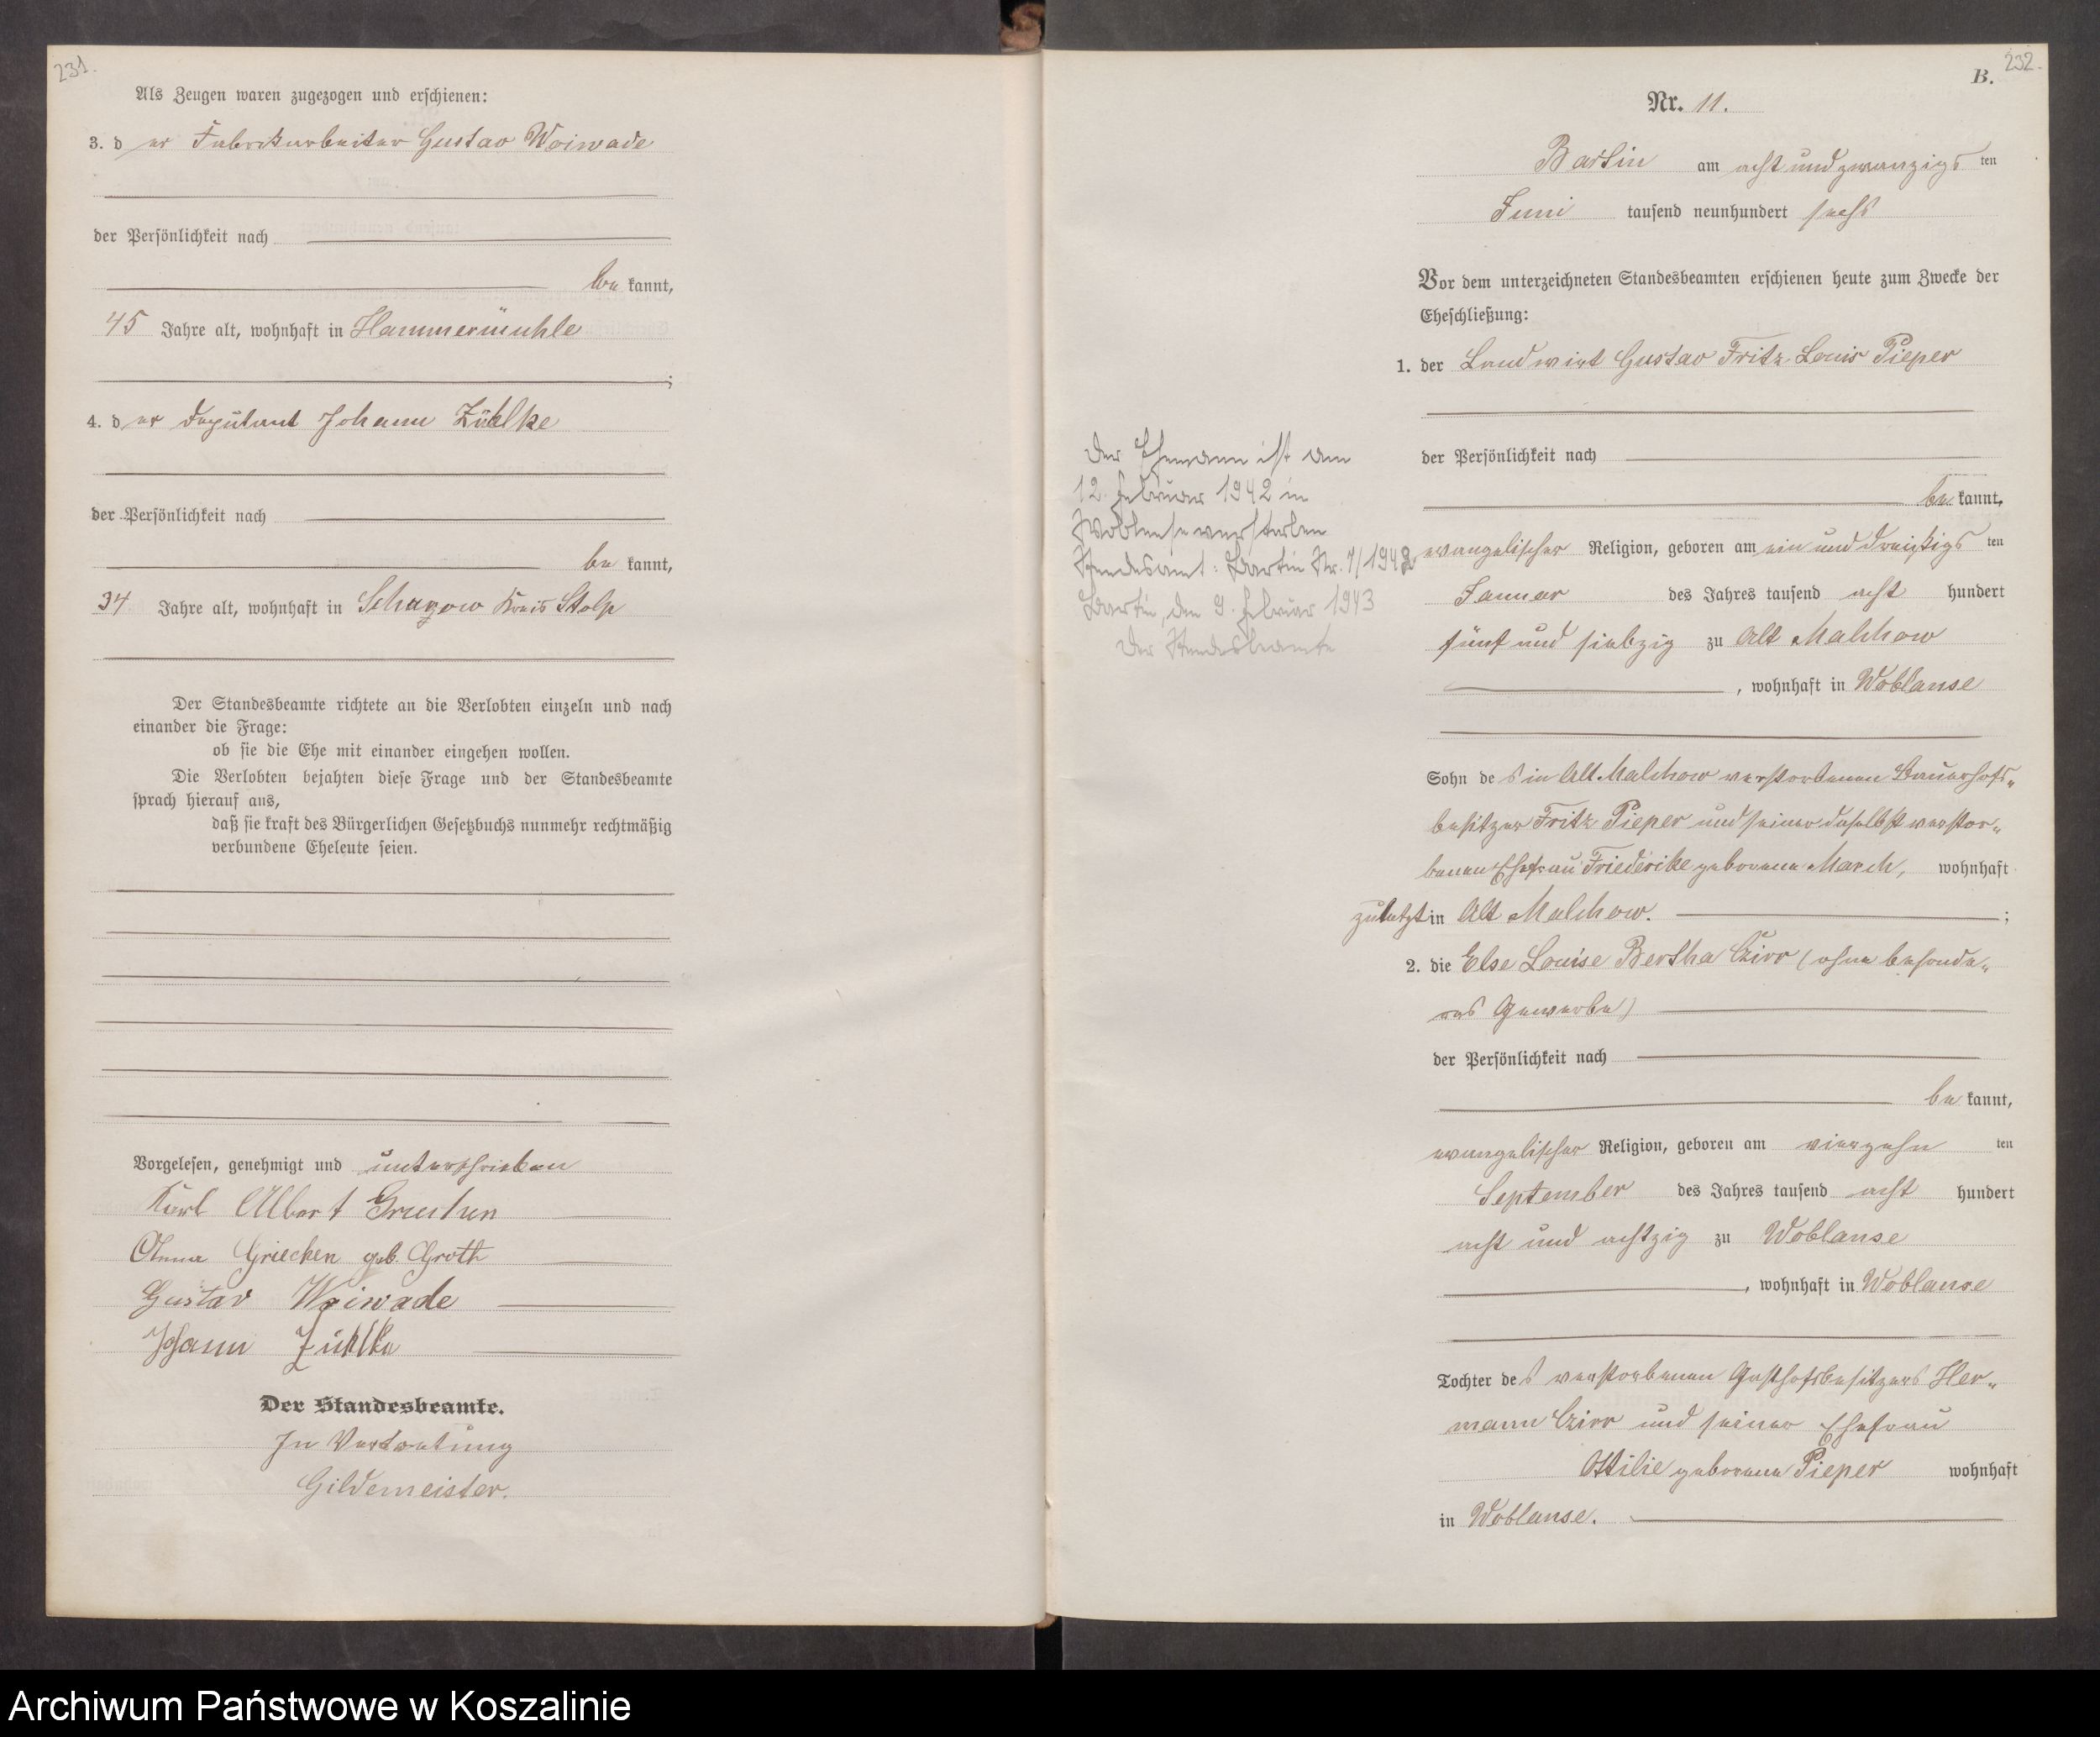 231.
Als Zeugen waren zugezogen und erschienen:
3. d er Fabrikarbeiter Gustav Woiwade
der Persönlichkeit nach
be kannt,
45 Jahre alt, wohnhaft in Hammermühle
;
4. d er Deputant Johann Zühlke
der Persönlichkeit nach
be kannt,
34 Jahre alt, wohnhaft in Schagow Kreis Stolp
Der Standesbeamte richtete an die Verlobten einzeln und nach
einander die Frage:
ob sie die Ehe mit einander eingehen wollen.
Die Verlobten bejahten diese Frage und der Standesbeamte
sprach hierauf aus,
daß sie kraft des Bürgerlichen Gesetzbuchs nunmehr rechtmäßig
verbundene Eheleute seien.
Vorgelesen, genehmigt und unterschrieben
Karl Albert
Anna Griechen geb. Groth
Gustav Woiwade
Johann Zühlke
Der Standesbeamte.
In Vertretung
Gildemeister.
232.
B.
Nr. 11.
Bartin am acht und zwanzigs ten
Juni tausend neunhundert sechs
Vor dem unterzeichneten Standesbeamten erschienen heute zum Zwecke der
Eheschließung:
1. der Landwirt Gustav Fritz Louis Pieper
der Persönlichkeit nach
be kannt,
evangelischer Religion, geboren am ein und dreißigs ten
Januar des Jahres tausend acht hundert
fünf und siebzig zu Alt Malchow
, wohnhaft in Woblanse
Sohn de s in Alt Malchow verstorbenen Bauerhofs„
besitzer Fritz Pieper und seiner daselbst verstor„
benen Ehefrau Friederike geborene March, wohnhaft
zuletzt in Alt Malchow. ;
2. die Else Louise Bertha Czirr (ohne besonde„
res Gewerbe)
der Persönlichkeit nach
be kannt,
evangelischer Religion, geboren am vierzehn ten
September des Jahres tausend acht hundert
acht und achtzig zu Woblanse
, wohnhaft in Woblanse
Tochter de s verstorbenen Gasthofsbesitzers Her„
mann Czirr und seiner Ehefrau
Ottilie geborene Pieper wohnhaft
in Woblanse.
Der Ehemann ist am
12. Februar 1942 in
Woblanse verstorben
Standesamt: Bartin Nr. 7/1942
Bartin, den 9. Februar 1943
Der Standesbeamte
Archiwum Państwowe w Koszalinie